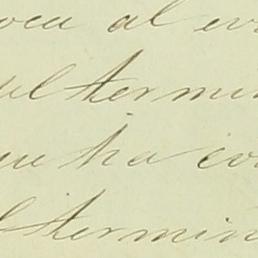 oca al ev
ul termin
ue ha co
l termin